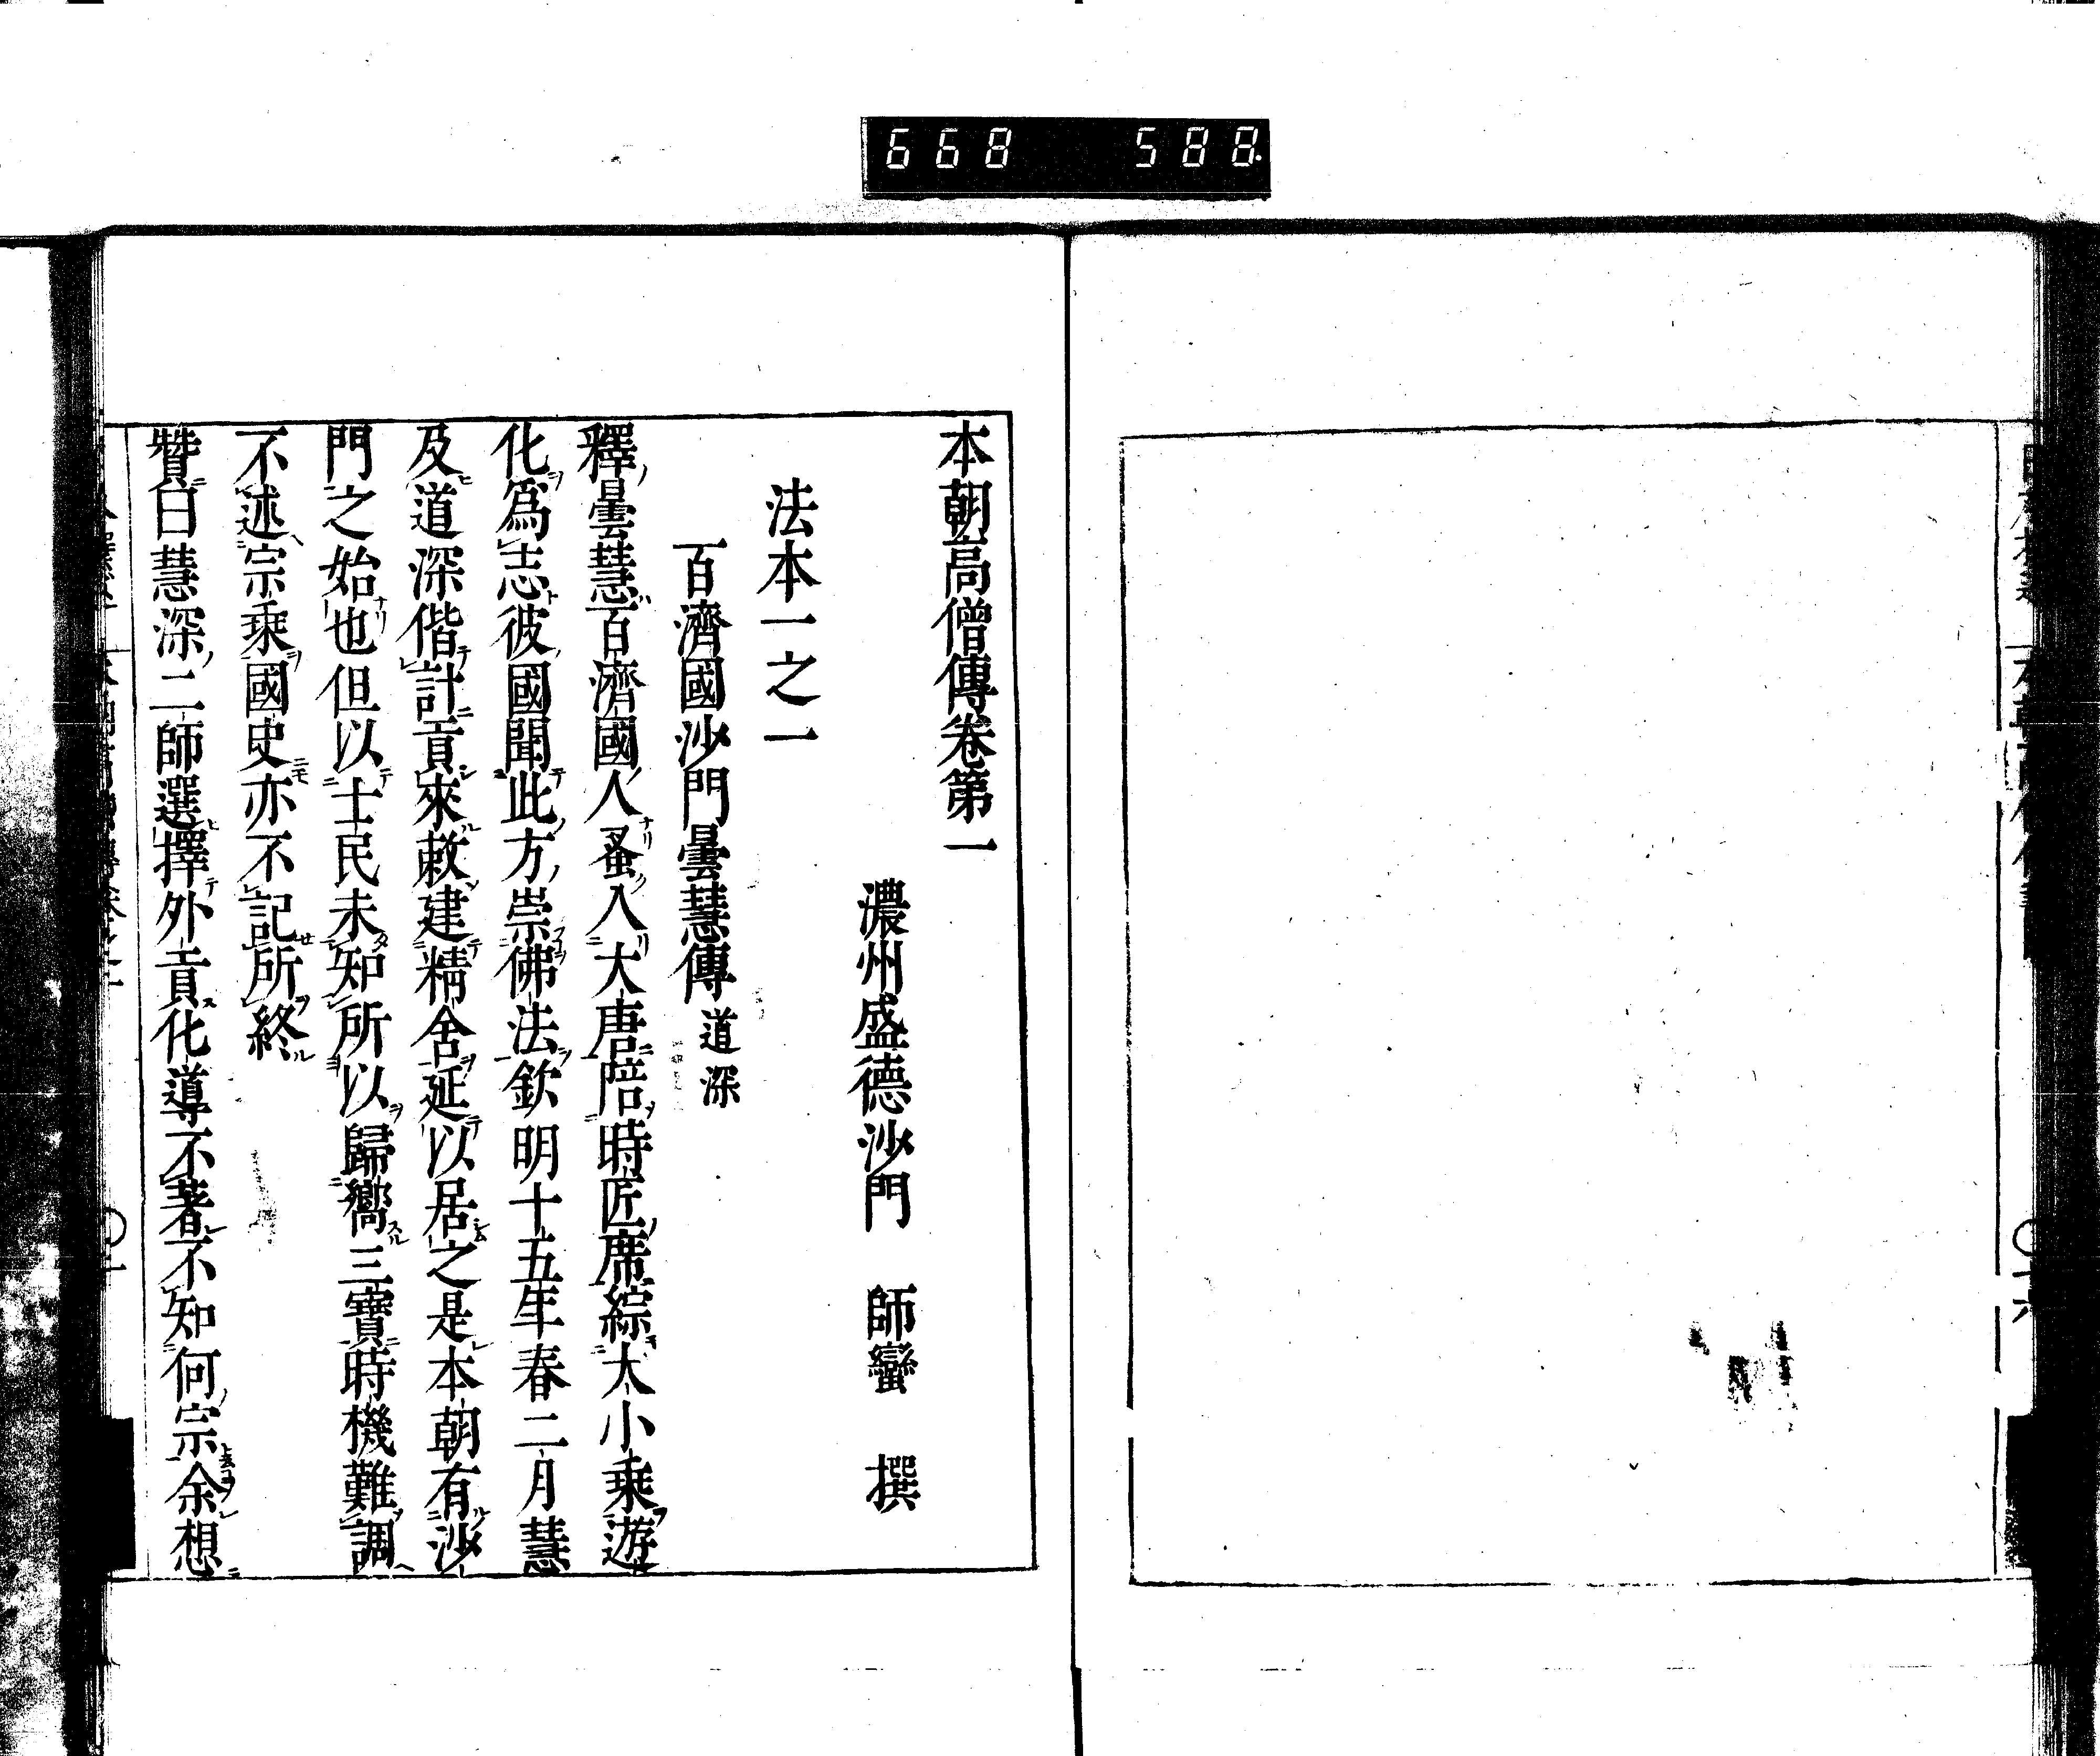 668 588
本朝高僧傳卷第一
濃州盛德沙門 師蠻 撰
法本一之一
百濟國沙門曇慧傳 道深
釋曇慧百濟國人蚤入大唐陪時匠席綜大小乘遊
化爲志彼國聞此方崇佛法欽明十五年春二月慧
及道深偕計貢來敕建精舍延以居之是本朝有沙
門之始也但以士民未知所以歸嚮三寶時機難調
不述宗乘國史亦不記所終
贊曰慧深二師選擇外貢化導不著不知何宗余想